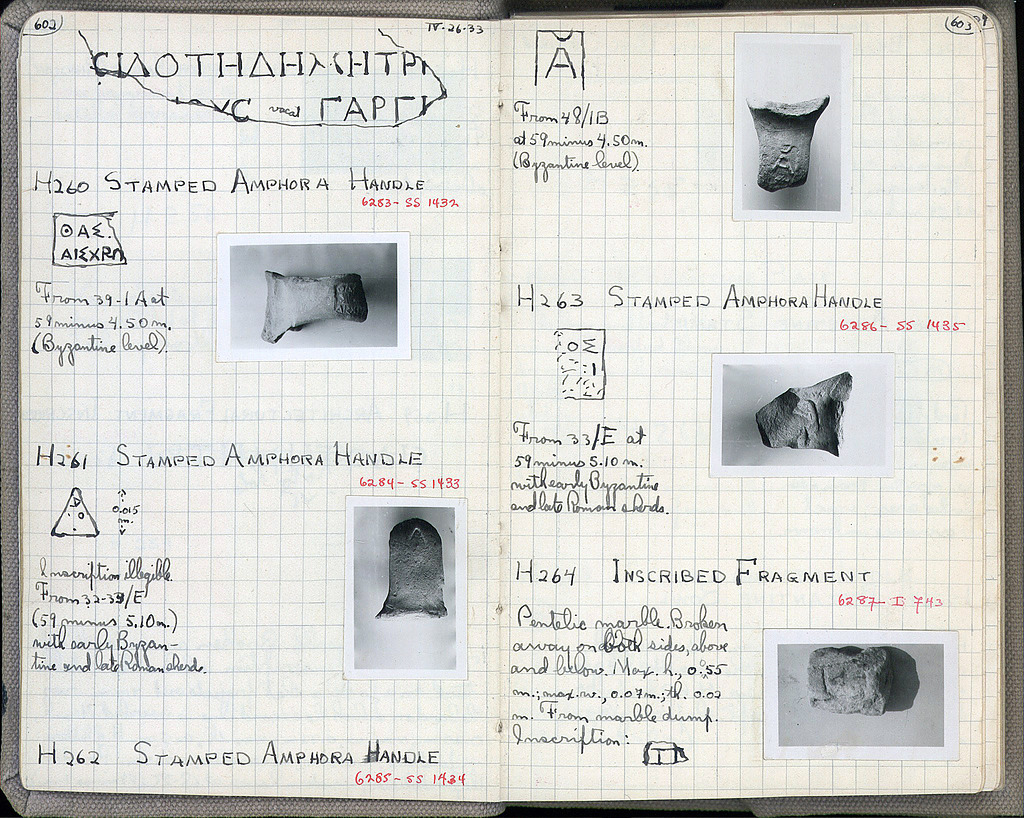 602
IV-26-33
ΦΙΛΟΤΗΔΗΜΗΤΡΙ
ΥϹ vacat ΓΑΡΓΙ
H260 STAMPED AMPHORA HANDLE
6283- SS 1432
ΘΑΣ.
ΑΙΣΧΡΩ
From 39-1 A at
59 minus 4.50 m.
(Byzantine level).
H261 STAMPED AMPHORA HANDLE
6284- SS 1433
0.015
m.
Inscription illegible.
From 32-33/E
(59 minus 5.10m.)
with early Byzan-
tine and late Roman sherds.
H262 STAMPED AMPHORA HANDLE
6285- SS 1434
603
A
From 48/IB
at 59 minus 4.50m.
(Byzantine level).
H263 STAMPED AMPHORA HANDLE
6286- SS 1435
ΟΣ
From 33/E at
59 minus 5.10 m.
with early Byzantine
and late Roman sherds.
H264 INSCRIBED FRAGMENT
6287- I 743
Pentelic marble. Broken
away on both sides, above
and below. Max. h., 0.055
m.; max. w., 0.07m.; th. 0.02
m. From marble dump.
Inscription: